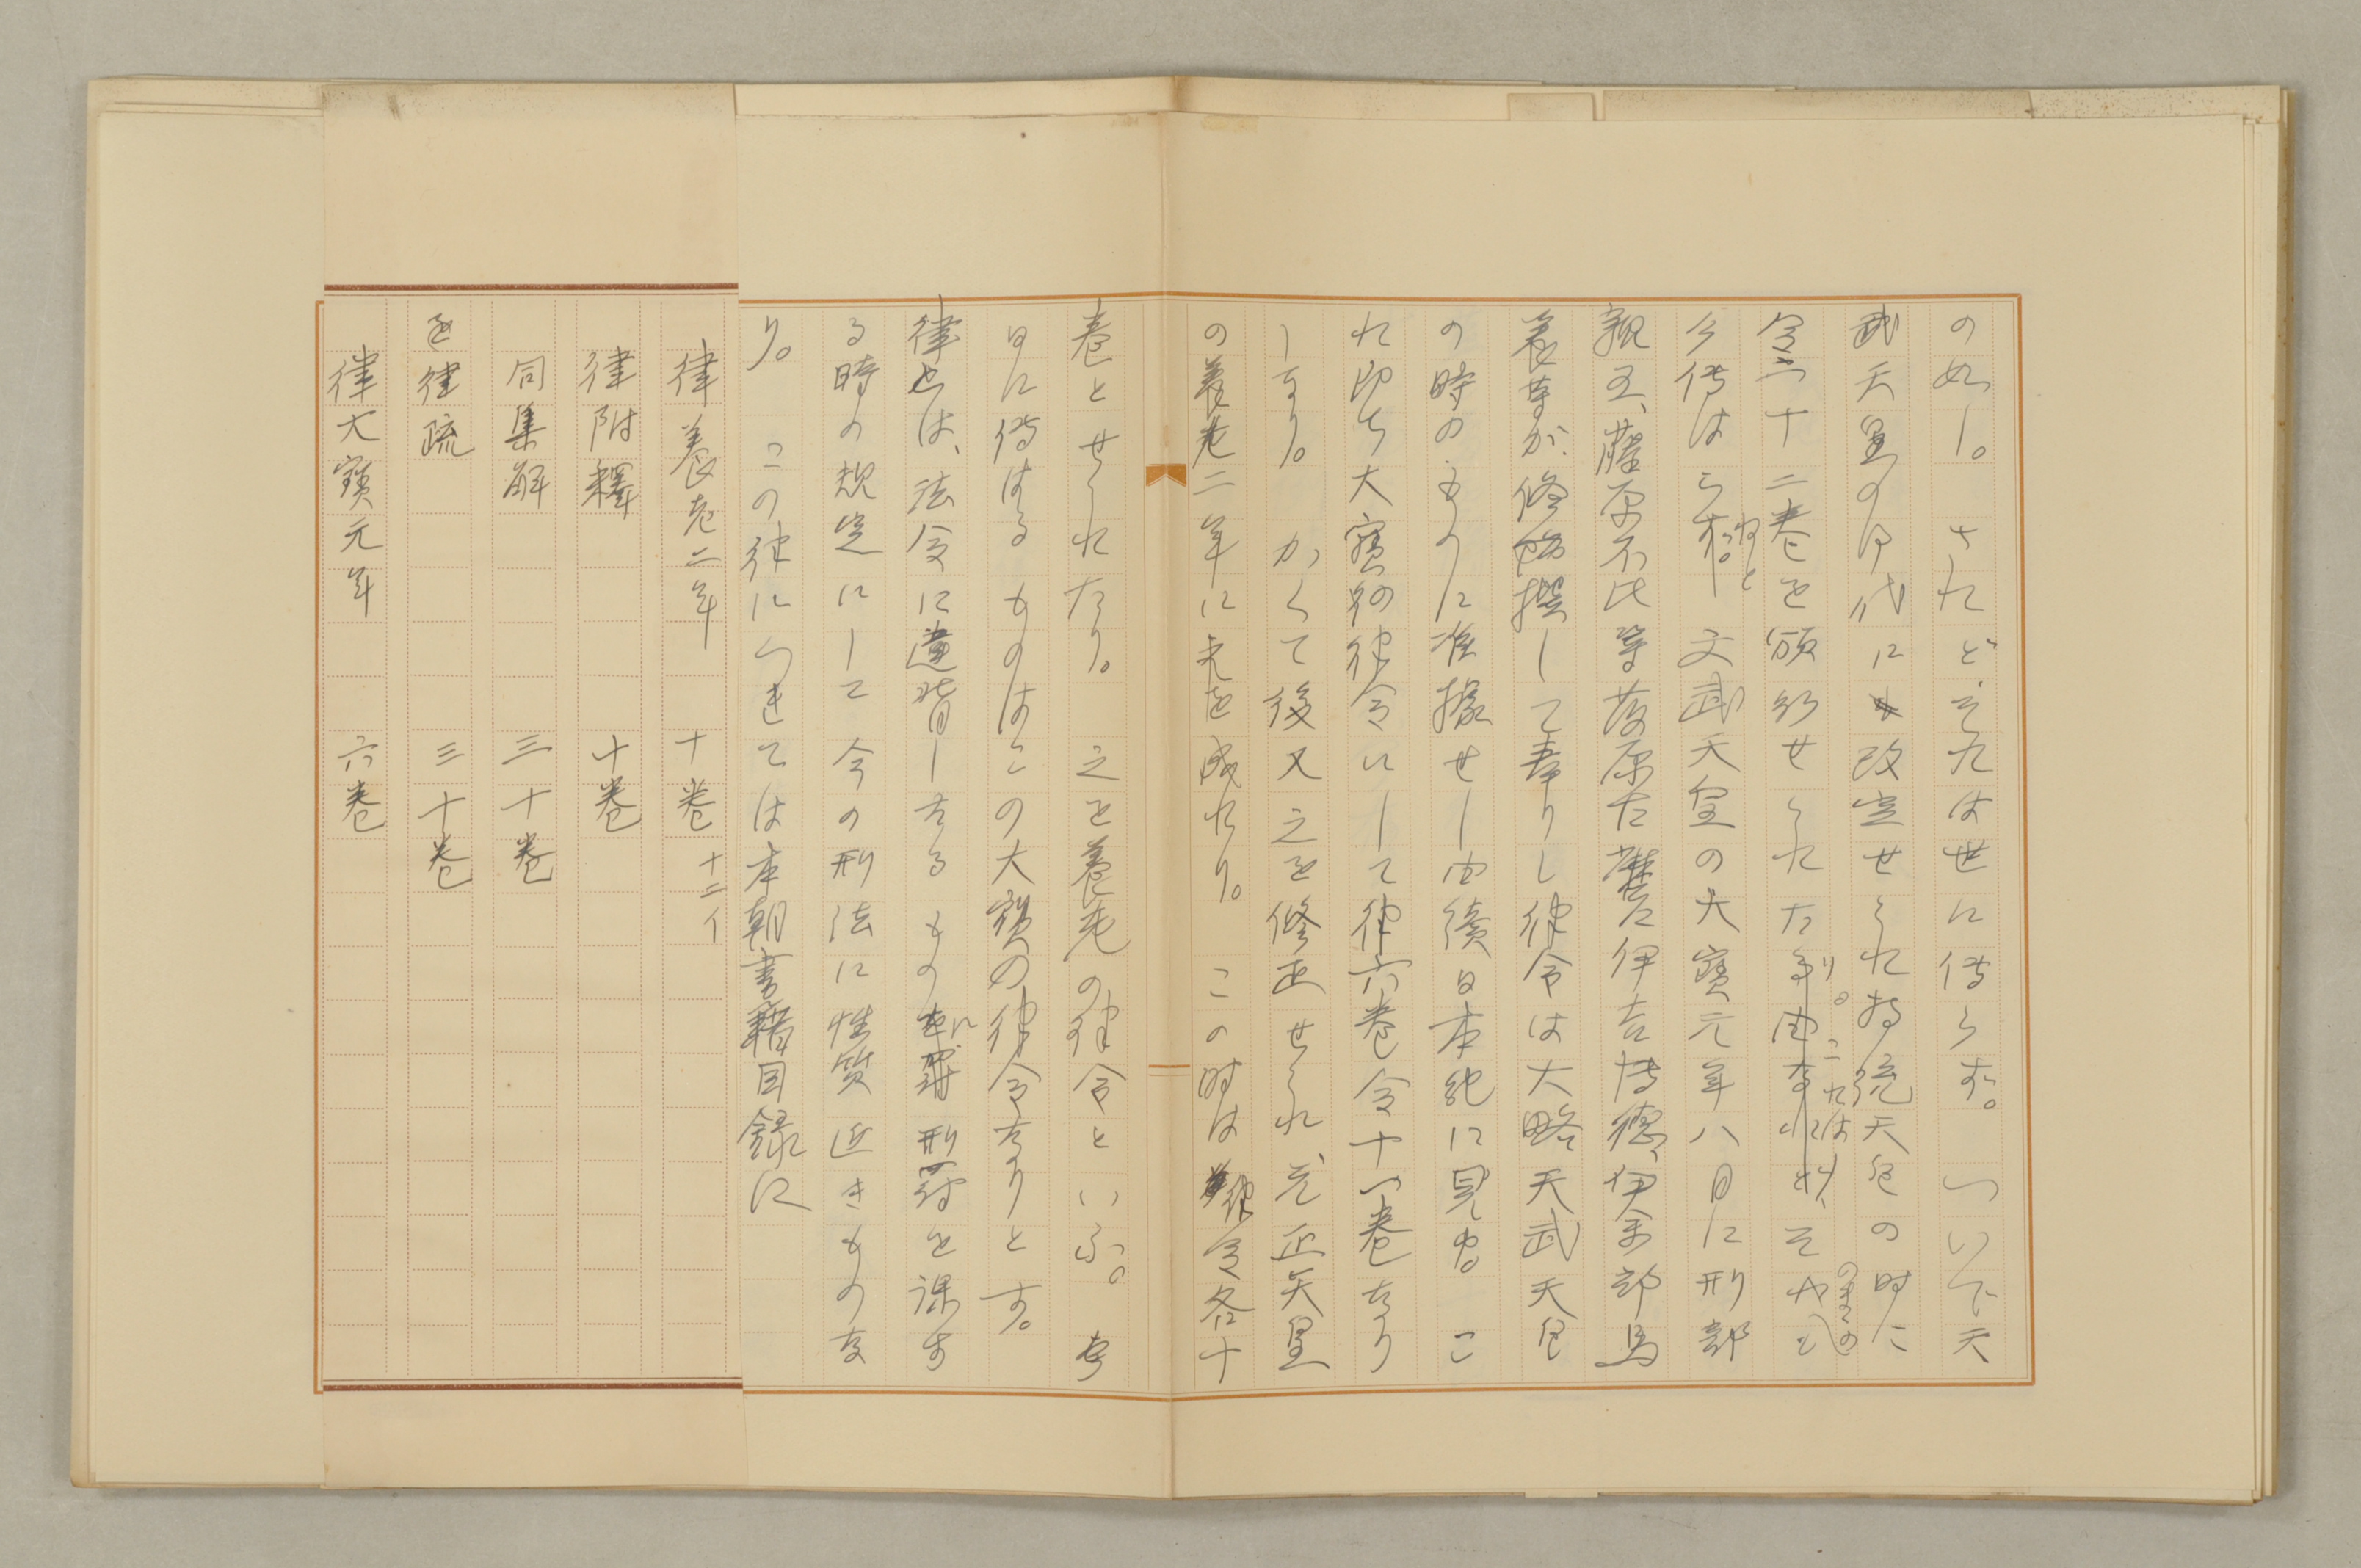 の如し。されど、それは世に傳らず。ついで天
武天皇の御代に改定せられ持統天皇の時に
令二十二卷を頒行せられたり。これは、そのまゝの
今傳はらねど。文武天皇の大寶元年八月に刑部
親王、藤原不比等、藤原古麿、伊吉博德、伊余部馬
養等が修撰して奉りし律令は大略天武天皇
の時のものに准據せし由續日本紀に見ゆ。こ
れ即ち大寶の律令にして律六卷令十一卷なり
しなり。かくて後又之を修正せられ、元正天皇
の養老二年に之を成れり。この時は律令各十
卷とせられたり。之を養老の律令といふ。
に傳はるものはこの大寶の律令なりとす。
律とは、法令に違背したるものに刑罰を課す
る時の規定にして今の刑法に性質近きものな
り。この律につきては本朝書籍目錄に
律養老二年 十卷 十二イ
律附釋 十卷
同集解 三十卷
律疏 三十卷
律大寶元年 六卷